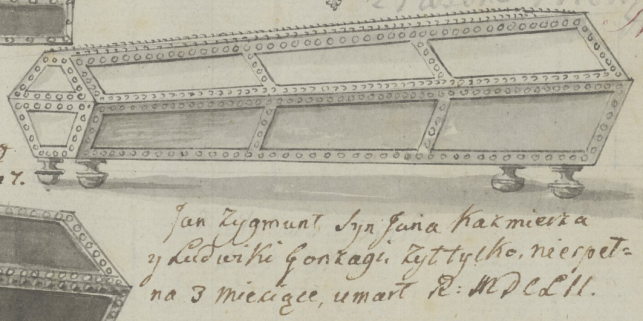 Jan Zygmunt Syn Jana Kazmierza
y Ludwiki Gonzagi, Zył tylko, niespeł-
na 3 miesiące, umarł R: MDCLII.
7.